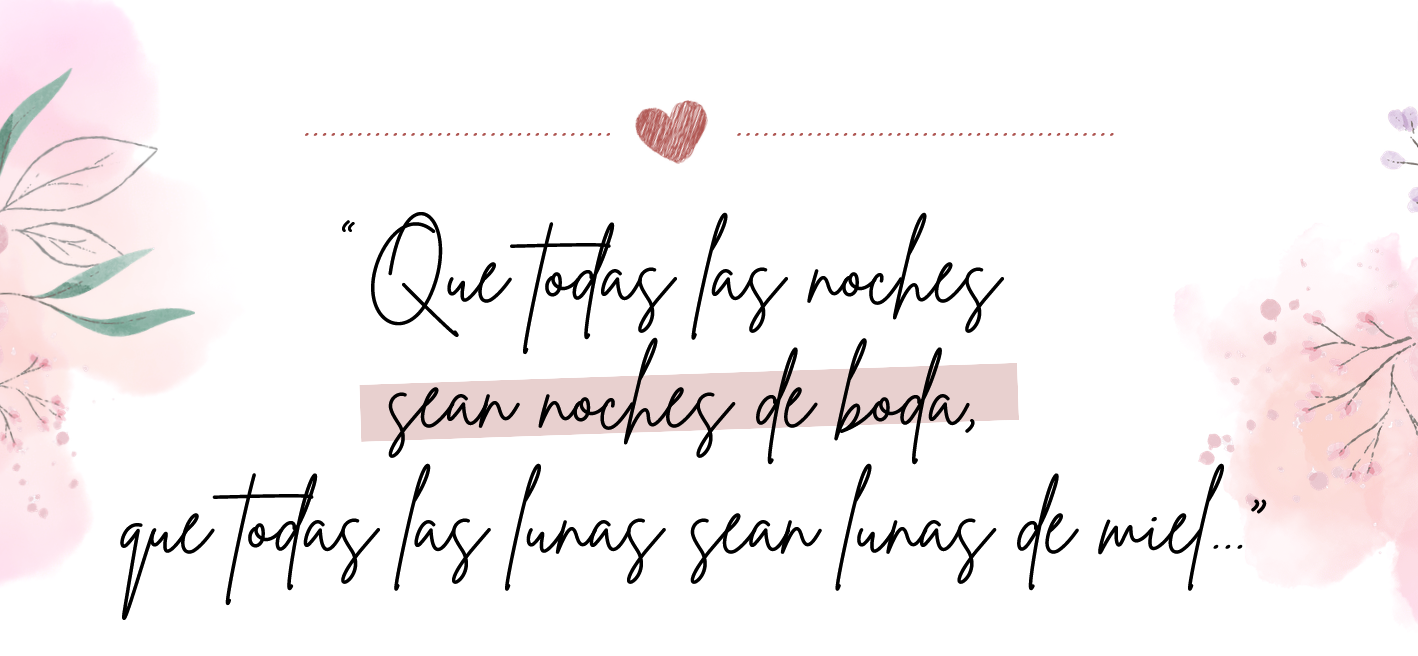 “Que todas las noches
sean noches de boda,
que todas las lunas sean lunas de miel...”